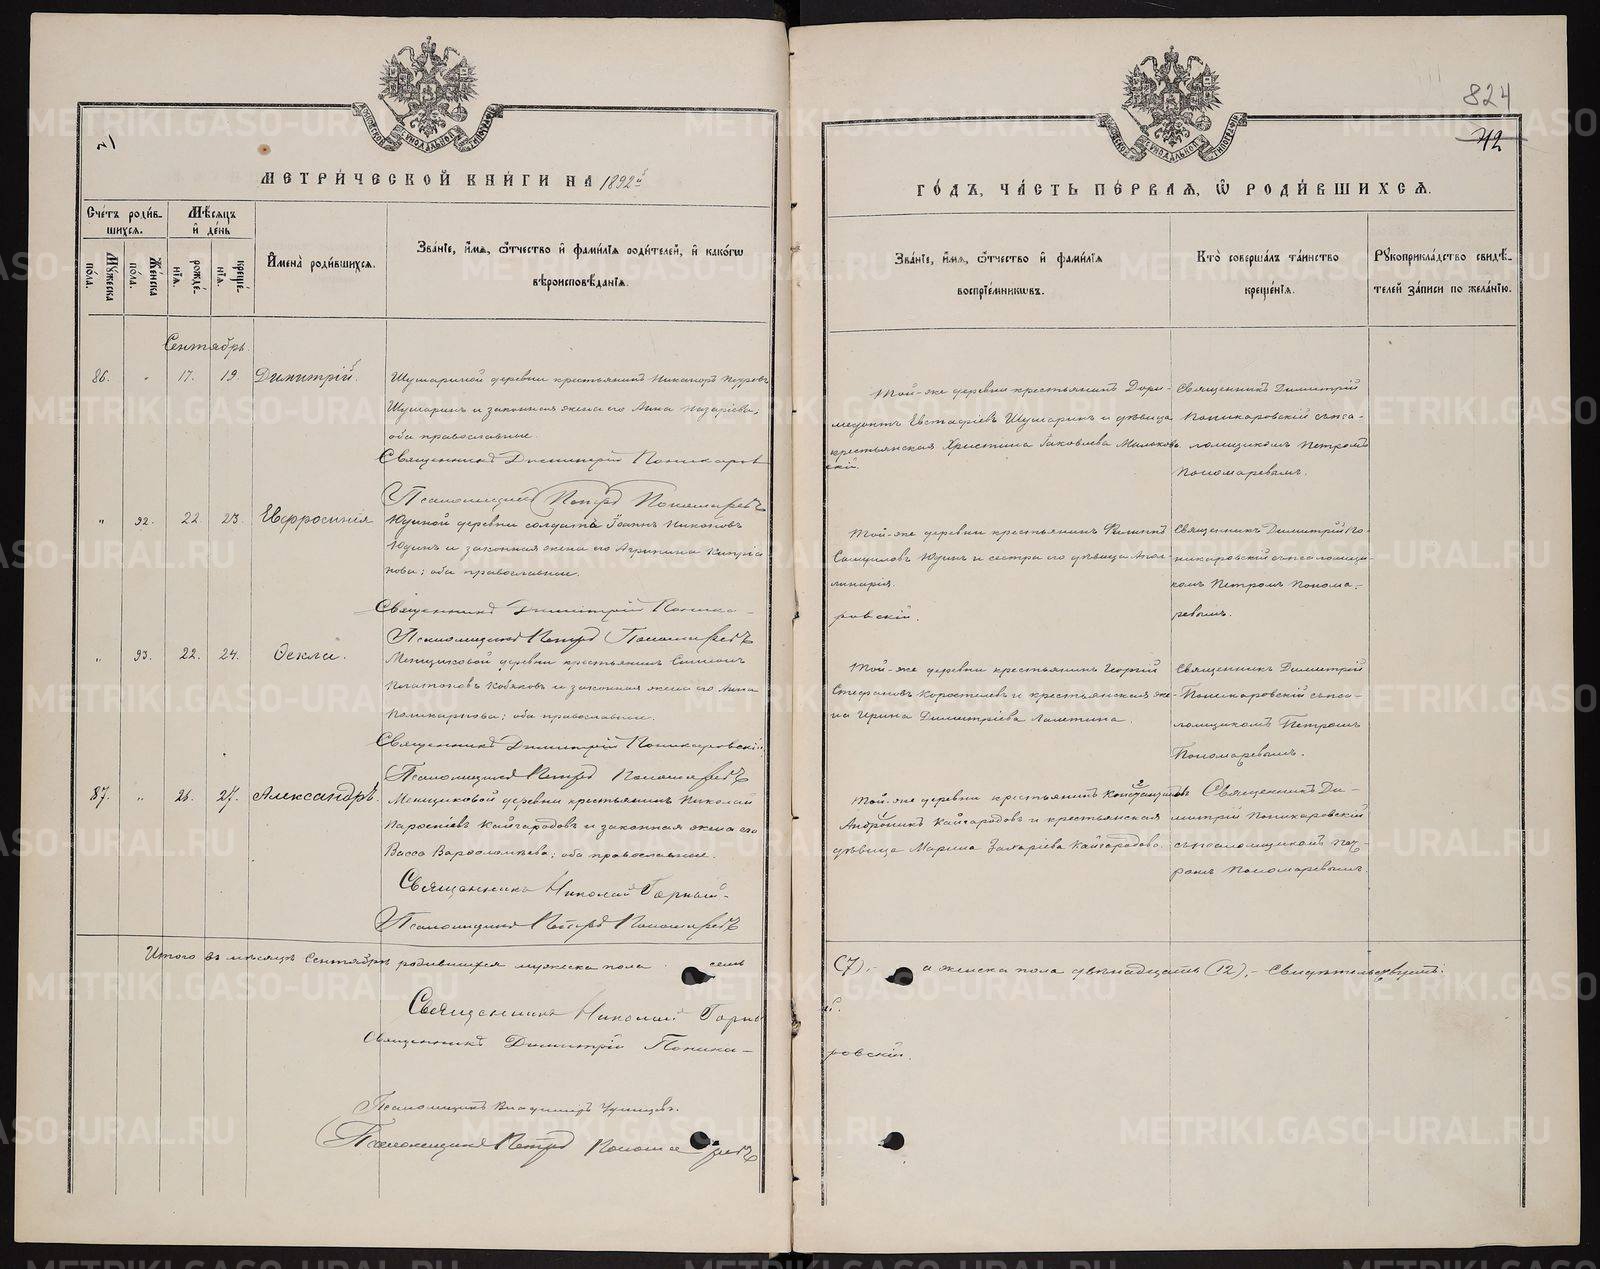 824
42
МЕТРИ́ЧЕСКОЙ КНИ́ГИ НА 1892й
ГО́ДЪ, ЧА́СТЬ ПЕ́РВАЯ, Ѡ РОДИ́ВШИХСЯ.
Сче́тъ роди́в-
шихся.
Мꙋжеска по́ла.
Же́нска по́ла.
Мѣ́сяцъ
и де́нь
рожде́-
нїя.
креще́-
нїя.
Имена̀ роди́вшихся.
Зва́нїе, и́мя, ѻ́тчество и фами́лїя роди́телей, и како́гѡ
вѣроисповѣ́данїя.
Зва́нїе, и́мя, ѻ́тчество и фами́лїя
воспрїе́мникѡвъ.
Кто̀ соверша́лъ та́инство
креще́нїя.
Рꙋкоприкла́дство свидѣ́-
телей за́писи по жела́нїю.
Сентябрь.
86. " 17. 19. Димитрій.
Шушариной деревни крестьянинъ Никаноръ Петровъ
Шушаринъ и законная жена его Анна Назаріева;
оба православные.
Священникъ Димитрій Поникаров
скій.
Псаломщикъ Петръ Пономаревъ
Той-же деревни крестьянинъ Дори-
медонтъ Евстафіевъ Шушаринъ и дѣвица
крестьянская Христина Іаковлева Милькова.
Священникъ Димитрій
Поникаровскій съ пса-
ломщикомъ Петромъ
Пономаревымъ.
" 92. 22. 23. Евфросинія
Юдиной деревни солдатъ Іоаннъ Никоновъ
Юдинъ и законная жена его Агрипина Кипріа
нова; оба православные.
Священникъ Димитрій Поника-
ровскій.
Псаломщикъ Петръ Пономаревъ
Той-же деревни крестьянинъ Филиппъ
Самуиловъ Юдинъ и сестра его дѣвица Апол-
линарія.
Священникъ Димитрій По-
никаровскій съ псаломщи-
комъ Петромъ Понома-
ревымъ.
" 93. 22. 24. Ѳекла.
Менщиковой деревни крестьянинъ Симеонъ
Платоновъ Кобяковъ и законная жена его Анна
Поликарпова; оба православные.
Священникъ Димитрій Поникаровскій
Псаломщикъ Петръ Пономаревъ
Той-же деревни крестьянинъ Георгій
Стефановъ Коростелевъ и крестьянская же-
на Ирина Димитріева Лаптина.
Священникъ Димитрій
Поникаровскій съ пса-
ломщикомъ Петромъ
Пономаревымъ.
87. " 26. 27. Александръ.
Менщиковой деревни крестьянинъ Николай
Кайгородовъ и законная жена его
Васса Варѳоломѣева; оба православные.
Священникъ Николай Горный.
Псаломщикъ Петръ Пономаревъ
Той-же деревни крестьянинъ Константинъ
Андроникъ Кайгородовъ и крестьянская
дѣвица Марина Захаріева Кайгородова.
Священникъ Ди-
митрій Поникаровскій
съ псаломщикомъ Пет-
ромъ Пономаревымъ
Итого въ мѣсяцѣ Сентябрѣ родившихся мужеска пола семь
(7),- а женска пола двѣнадцать (12),- Свидѣтельствуютъ:
Священникъ Николай Горны
й.
Священникъ Димитрій Поника-
ровскій.
Псаломщикъ Владиміръ
Псаломщикъ Петръ Пономаревъ
METRIKI.GASO-URAL.RU